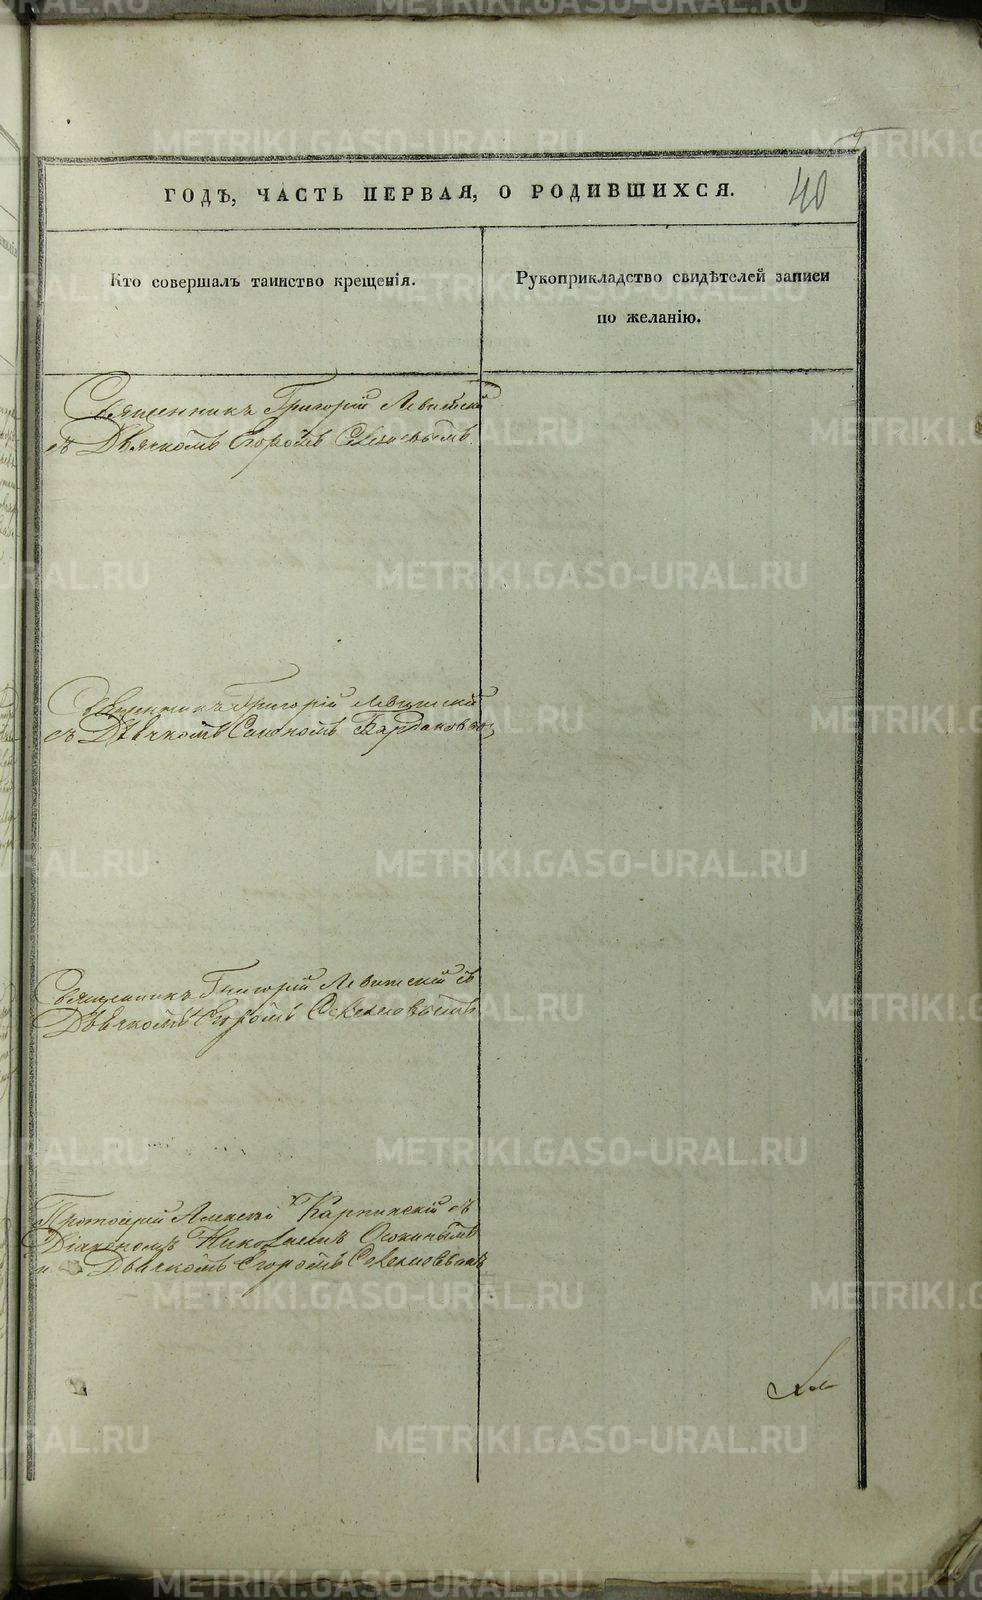 40
ГОДЪ, ЧАСТЬ ПЕРВАЯ, О РОДИВШИХСЯ.
Кто совершалъ таинство крещенія.
Рукоприкладство свидѣтелей записи
по желанію.
Священникъ Григорій Левитскій
съ Дьячкомъ Егоромъ
Священникъ Григорій Левитскій
съ Дьячкомъ
Священникъ Григорій Левитскій съ
Дьячкомъ Егоромъ
Протоіерей Алексѣй Карпинскій съ
Діакономъ Николаемъ Осокинымъ
и Дьячкомъ Егоромъ
METRIKI.GASO-URAL.RU